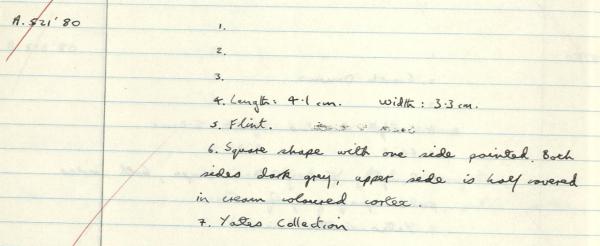 A.521'80
1.
2.
3.
4. Length: 4.1 cm. Width: 3.3 cm.
5. Flint.
6. Square shape with one side pointed. Both
sides dark grey, upper side is half covered
in cream coloured cortex.
7. Yates Collection